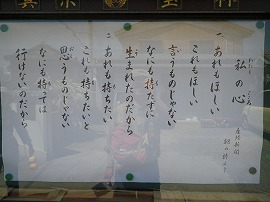 私の心
一、あれもほしい
これもほしいと
言うものじゃない
なにも持たずに
生まれたのだから
一、あれも持ちたい
これも持ちたいと
思うものじゃない
なにも持っては
行けないのだから